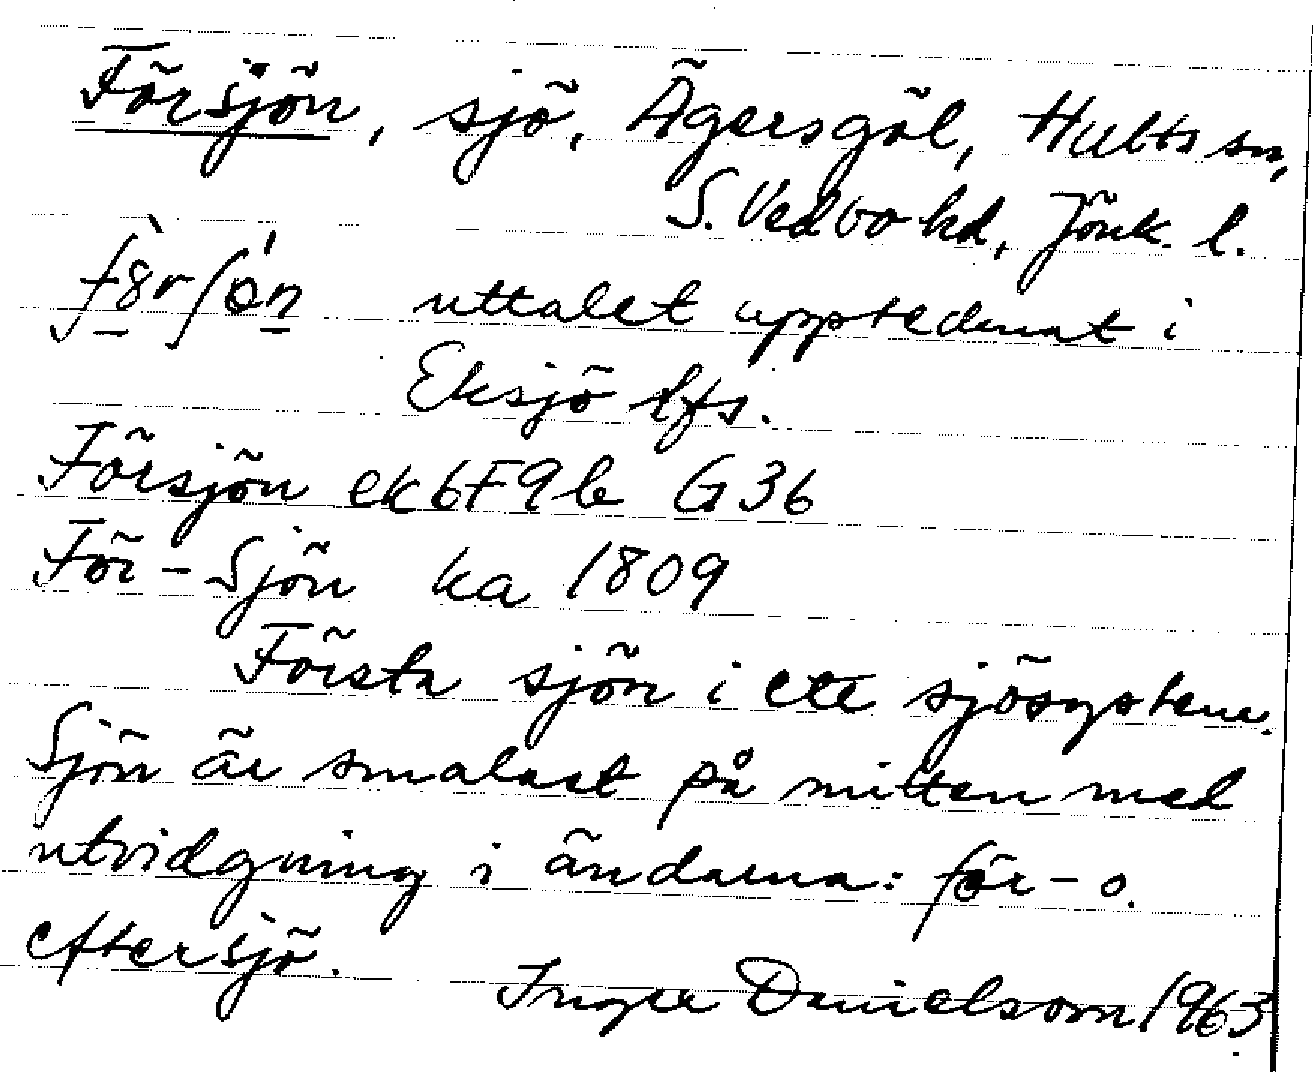 Försjön, sjö, Ägersgöl, Hults sn,
S. Vedbo hd, Jönk. l.
uttalet upptecknat i
Eksjö lfs.
Försjön ek 6F9b G36
För-Sjön ka 1809
Första sjön i ett sjösystem.
Sjön är smalast på mitten med
utvidgning i ändarna: för- o.
eftersjö.
Inger Danielsson 1963